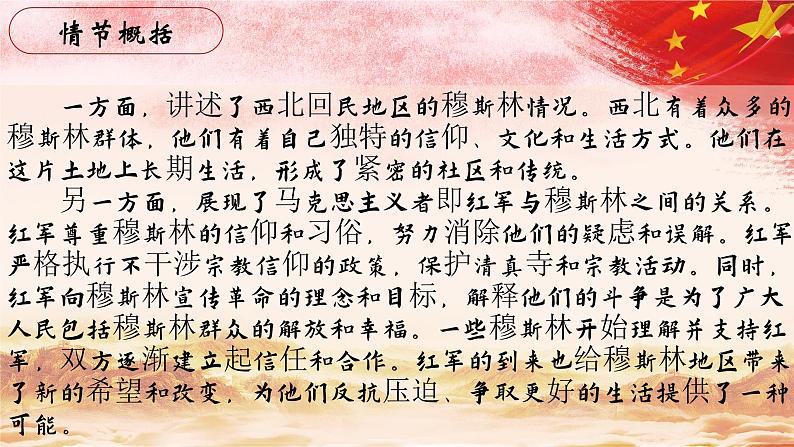 情节概括
一方面，讲述了西北回民地区的穆斯林情况。西北有着众多的
穆斯林群体，他们有着自己独特的信仰、文化和生活方式。他们在
这片土地上长期生活，形成了紧密的社区和传统。
另一方面，展现了马克思主义者即红军与穆斯林之间的关系。
红军尊重穆斯林的信仰和习俗，努力消除他们的疑虑和误解。红军
严格执行不干涉宗教信仰的政策，保护清真寺和宗教活动。同时，
红军向穆斯林宣传革命的理念和目标，解释他们的斗争是为了广大
人民包括穆斯林群众的解放和幸福。一些穆斯林开始理解并支持红
军，双方逐渐建立起信任和合作。红军的到来也给穆斯林地区带来
了新的希望和改变，为他们反抗压迫、争取更好的生活提供了一种
可能。